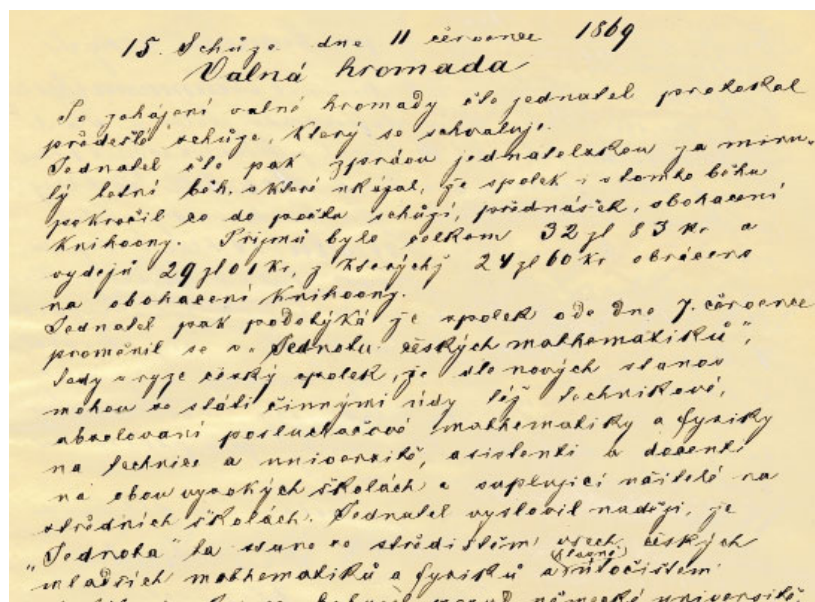 15. Schůze dne 11 července 1869
Valná hromada
Po zahájení valné hromady čte jednatel protokol
předešlé schůze, který se schvaluje.
Jednatel čte pak zprávu jednatelskou za minu-
lý letní běh, z které ukázal, že spolek i v tomto běhu
pokročil co do počtu schůzí, přednášek, obohacení
knihovny. Příjmů bylo celkem 32 zl 83 kr a
vydajů 29 zl 01 kr, z kterýchž 24 zl 60 kr obráceno
na obohacení knihovny.
Jednatel pak podotýká že spolek ode dne 7. července
proměnil se v „Jednotu českých mathematiků",
tedy v ryze český spolek, že dle nových stanov
mohou se státi činnými údy též technikové,
absolovaní posluchačové mathematiky a fysiky
na technice a universitě, asistenti a docenti
na obou vysokých školách a suplující učitelé na
středních školách. Jednatel vyslovil naději, že
"Jednota" ta stane se středištěm všech českých
mladších mathematiků a fysiků a útočištěm
německé universitě